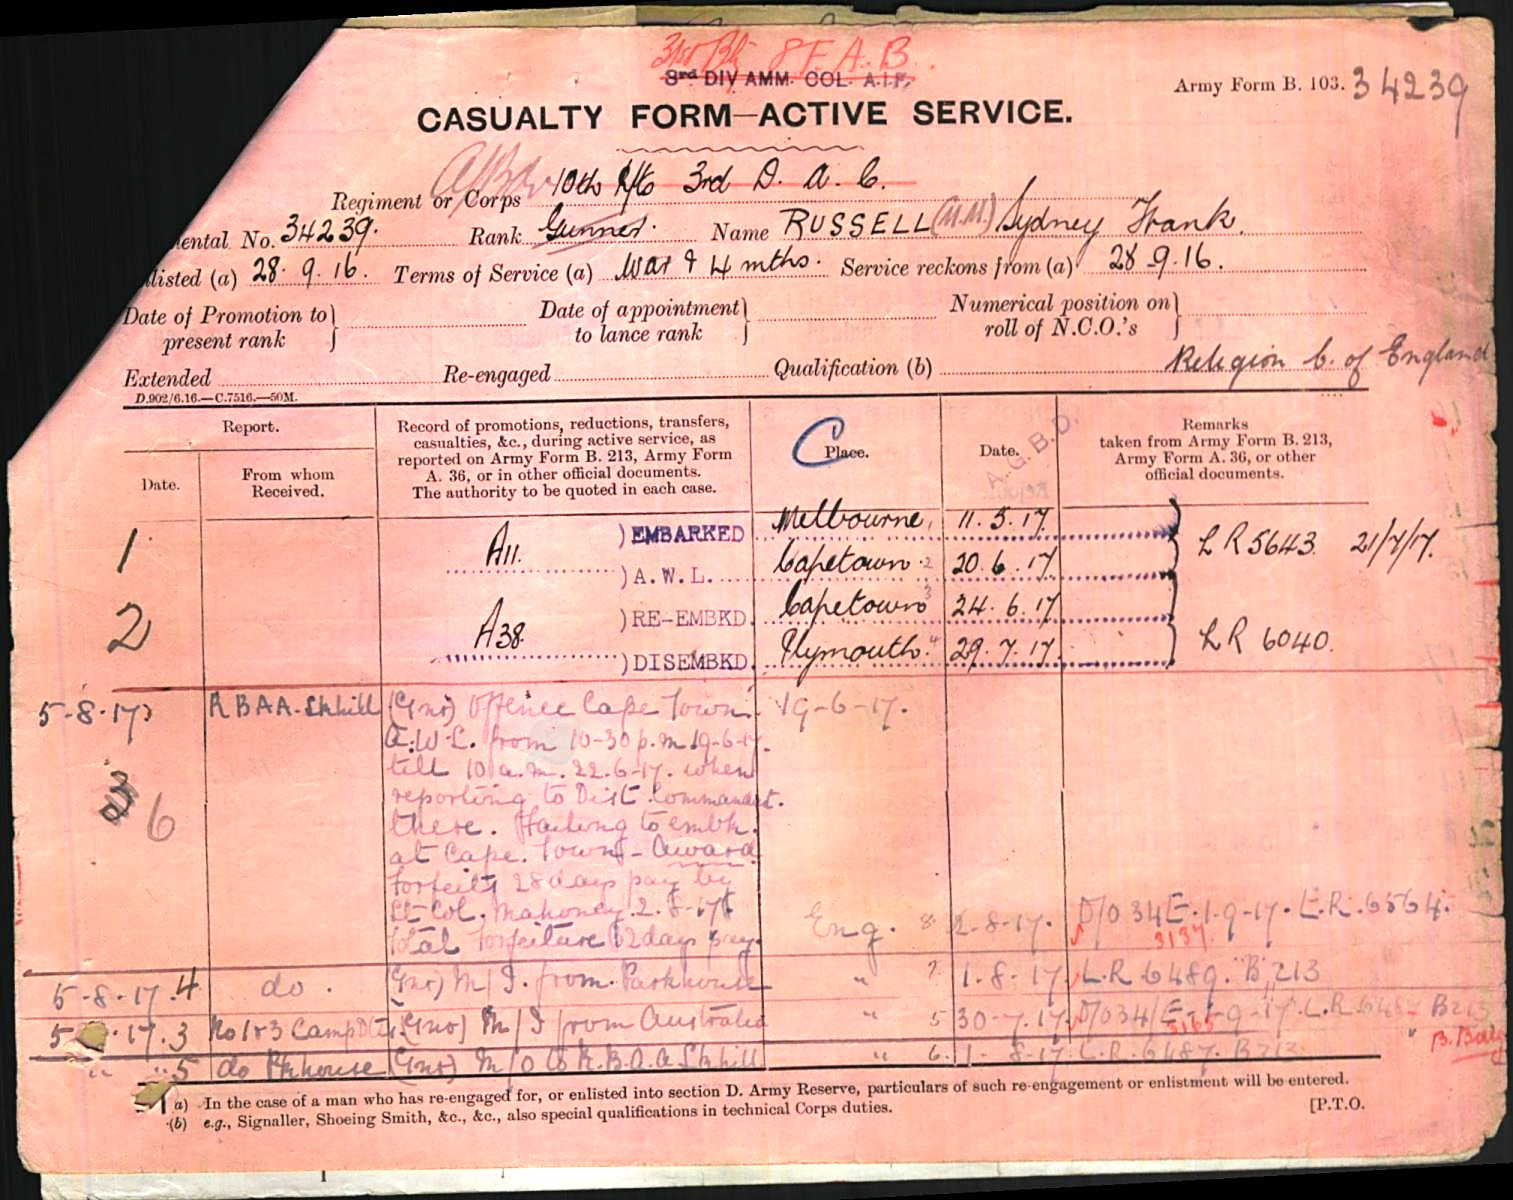 31st Bty 8 F. A. B.
3rd DIV AMM. COL. A.I.F.
Army Form B. 103. 34239
CASUALTY FORM—ACTIVE SERVICE.
Regiment or Corps 10th R/fs 3rd D. A. C.
ental No. 34239. Rank Gunner. Name RUSSELL (M.M.) Sydney Frank.
listed (a) 28. 9. 16. Terms of Service (a) War & 4 mths. Service reckons from (a) 28.9.16.
Date of Promotion to present rank } Date of appointment to lance rank } Numerical position on roll of N.C.O.'s }
Religion C. of England
Extended Re-engaged Qualification (b)
D.902/6.16.—C.7516.—50M.
Report.
Date.
From whom Received.
Record of promotions, reductions, transfers,
casualties, &c., during active service, as
reported on Army Form B. 213, Army Form
A. 36, or in other official documents.
The authority to be quoted in each case.
C
Place.
Date.
A.G.B.D.
Remarks
taken from Army Form B. 213,
Army Form A. 36, or other
official documents.
1 A11. ) EMBARKED Melbourne, 11. 5. 17.
) A.W.L. Capetown 2 20. 6. 17
L R 5643. 21/7/17.
2 A38. ) RE-EMBKD. Capetown 3 24. 6. 17
) DISEMBKD. Plymouth. 4 29. 7. 17.
L R 6040.
5-8-17 R B A A. Lkhill (Gnr) Offence Cape Town 19-6-17.
A.W.L. from 10-30 p.m 19-6-17.
till 10 a.m. 22.6-17. when
reporting to Dist Commandt.
3 6 there. Failing to embk.
at Cape Town - Award
forfeits 28 days pay by
Lt Col. Mahoney. 2. 8-17
Total forfeiture 32 days pay. Eng. 8. 2-8-17. D/O 34E. 1-9-17. L.R. 6564.
3137
5-8-17. 4 do. (Gnr) M/I. from Parkhouse " 7. 1-8-17 L.R 6489. B213
5 .17. 3 No 1&3 Camp (Gnr) M/I from Australia " 5 30-7-17. D/O 34/E-1-9-17. L.R. B213
3165
" " 5 do Pkhouse (Gnr) M/O to R.B.A.A Lkhill " 6. 1-8-17 L.R. 6487. B213 "
(a) In the case of a man who has re-engaged for, or enlisted into section D. Army Reserve, particulars of such re-engagement or enlistment will be entered.
(b) e.g., Signaller, Shoeing Smith, &c., &c., also special qualifications in technical Corps duties.
[P.T.O.